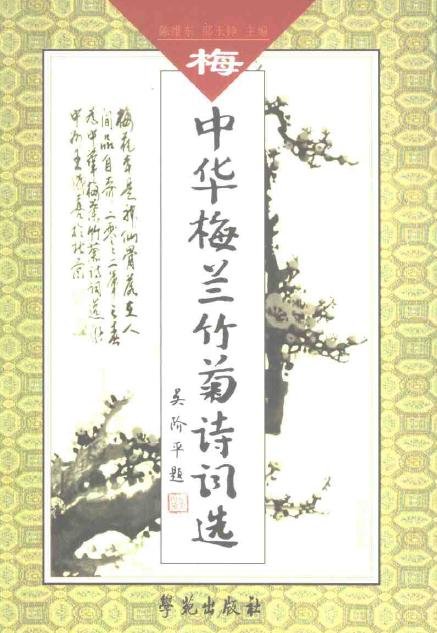 陈维东 邵玉铮 主编
梅
中华梅兰竹菊诗词选
吴阶平题
梅花本是神仙骨落在人
间品自奇 二〇〇二年之春
为中华梅兰竹菊诗词选作
中州王成喜于北京
學苑出版社